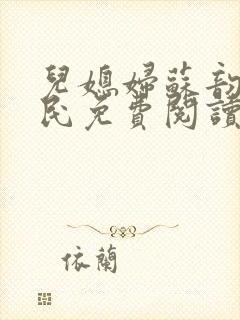 兒媳婦蘇韵
民免費閱讀
依蘭